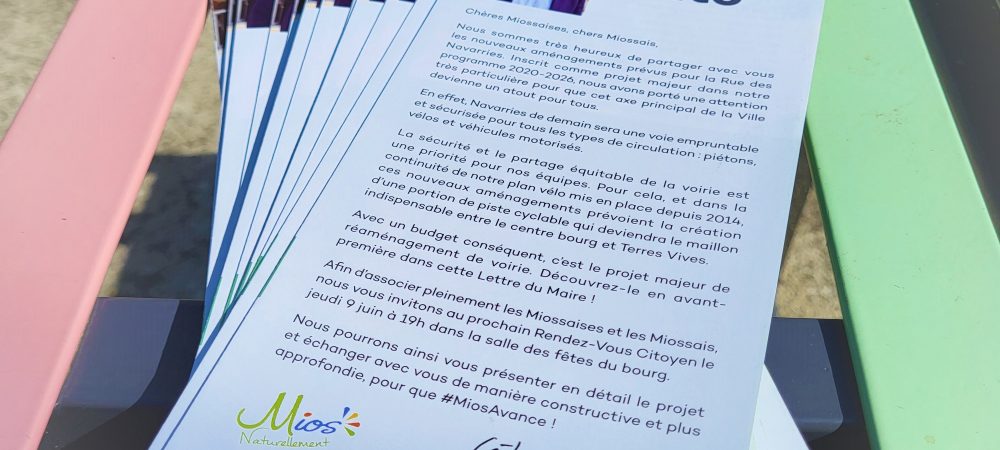 Chères Miossaises, chers Miossais,
Nous sommes très heureux de partager avec vous
les nouveaux aménagements prévus pour la Rue des
Navarries. Inscrit comme projet majeur dans notre
programme 2020-2026, nous avons porté une attention
très particulière pour que cet axe principal de la Ville
devienne un atout pour tous.
En effet, Navarries de demain sera une voie empruntable
et sécurisée pour tous les types de circulation : piétons,
vélos et véhicules motorisés.
La sécurité et le partage équitable de la voirie est
une priorité pour nos équipes. Pour cela, et dans la
continuité de notre plan vélo mis en place depuis 2014,
ces nouveaux aménagements prévoient la création
d'une portion de piste cyclable qui deviendra le maillon
indispensable entre le centre bourg et Terres Vives.
Avec un budget conséquent, c'est le projet majeur de
réaménagement de voirie. Découvrez-le en avant-
première dans cette Lettre du Maire !
Afin d'associer pleinement les Miossaises et les Miossais,
nous vous invitons au prochain Rendez-Vous Citoyen le
jeudi 9 juin à 19h dans la salle des fêtes du bourg.
Nous pourrons ainsi vous présenter en détail le projet
et échanger avec vous de manière constructive et plus
approfondie, pour que #MiosAvance !
Mios
Naturellement